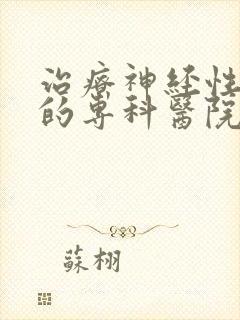 治療神経性
的専科醫院
蘇栩